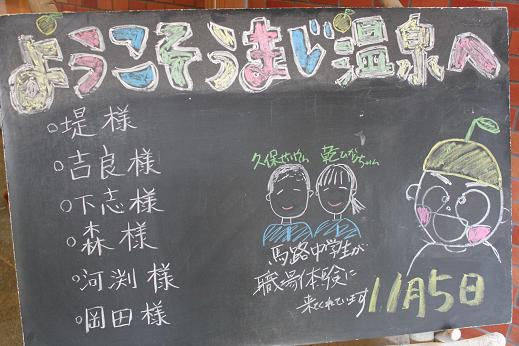 ようこそうまじ温泉へ
○堤様
○吉良様
○下志様
○森様
○河渕様
○岡田様
馬路中学生が
職場体験に
来てくれています
11月5日